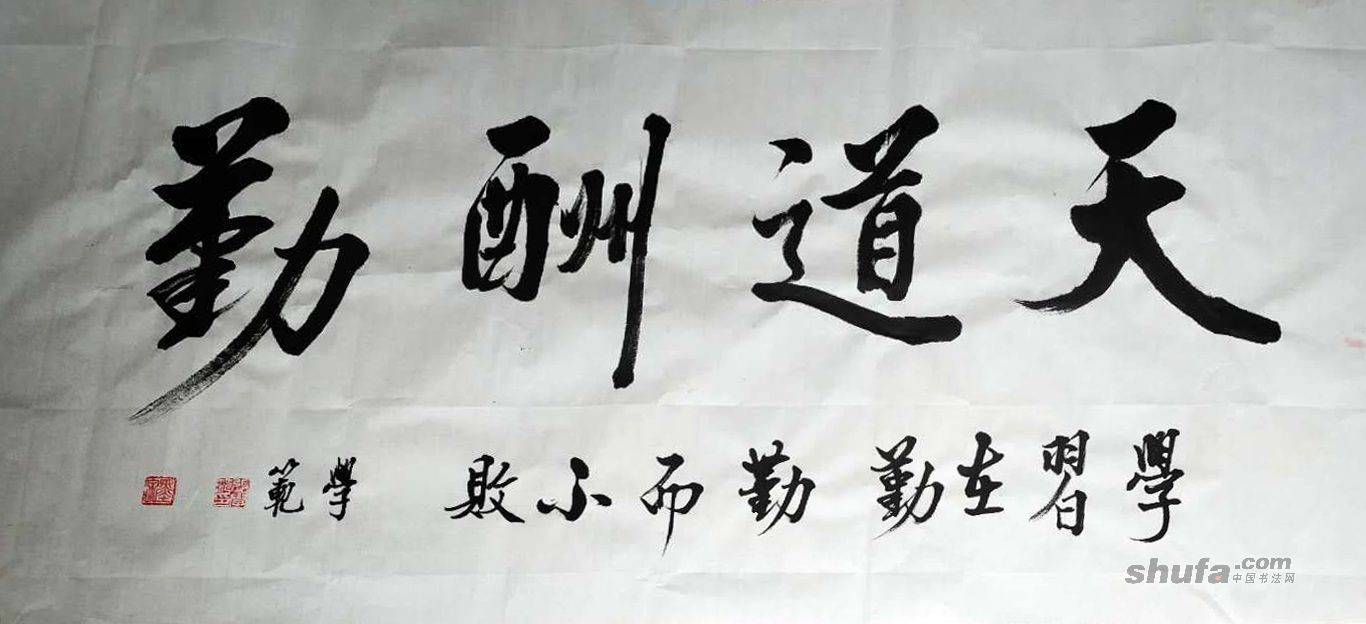 天道酬勤
學習在勤勤而不敗
學範
shufa.com
中国书法网